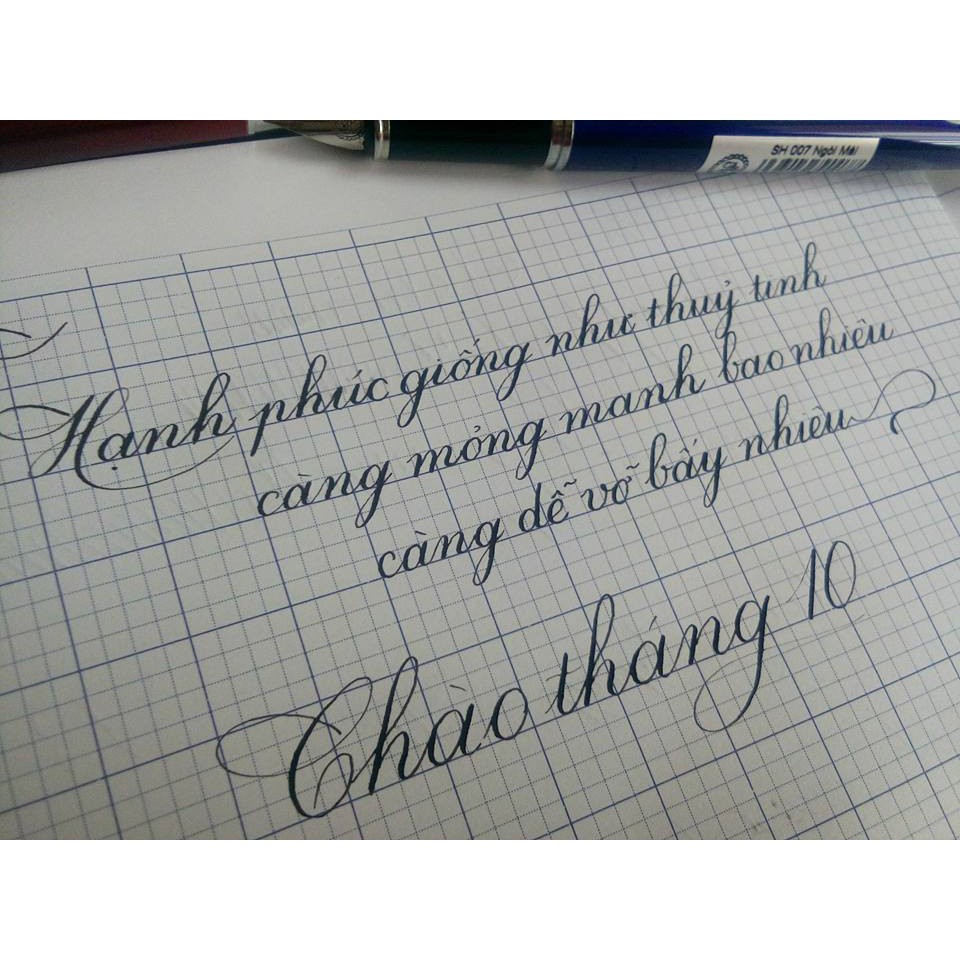 SH 007 Ngòi Mài
Hạnh phúc giống như thuỷ tinh
càng mỏng manh bao nhiêu
càng dễ vỡ bấy nhiêu
Chào tháng 10